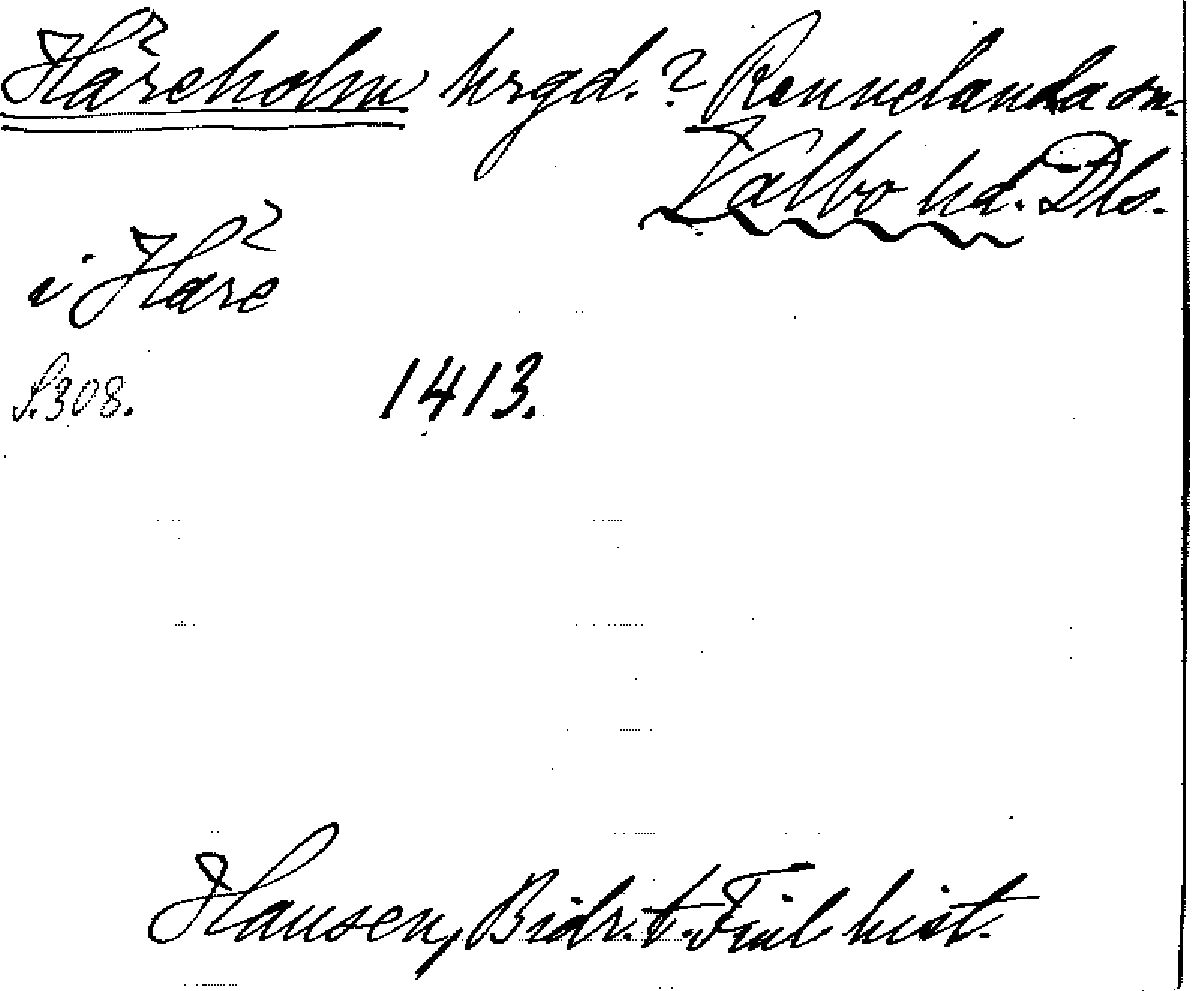 Håreholm hrgd.? Rennelanda sn.
Valbo hd. Dls.
i Hare
S. 308. 1413.
Hausen, Bidr. t. Finl. hist.